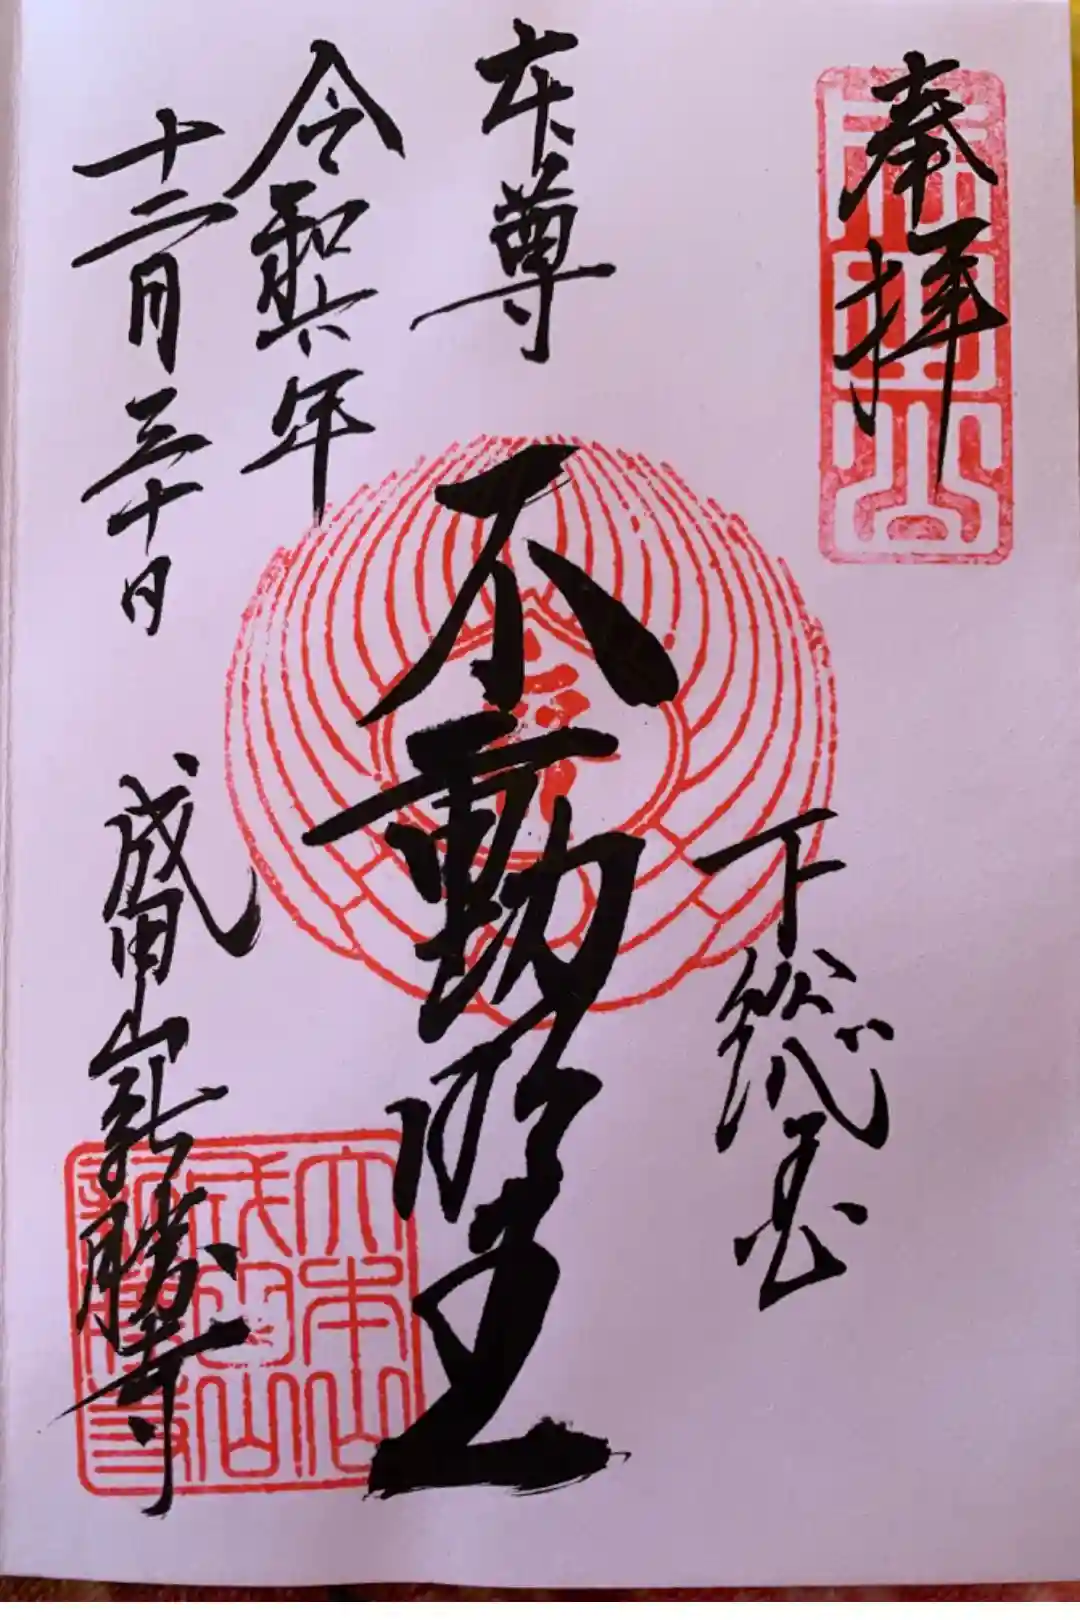 奉拝
下総國
本尊
不動明王
令和六年
十二月三十日
成田山新勝寺
成田山
大本山
成田山
新勝寺